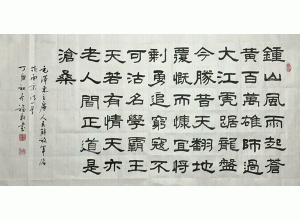 鍾山風雨起蒼
黃百萬雄師過
大江虎踞龍盤
今勝昔天翻地
覆慨而慷宜將
剩勇追窮寇不
可沽名學霸王
天若有情天亦
老人間正道是
滄桑
毛澤東主席人民解放軍占
領南京
丁酉初冬